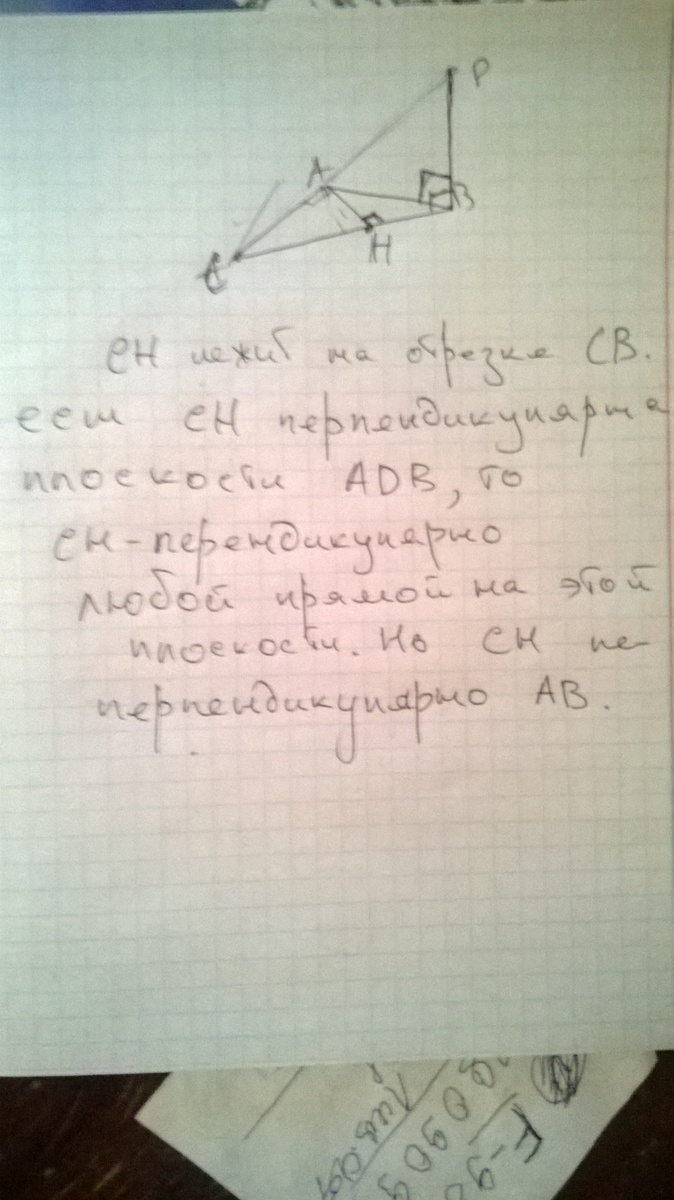 P
A
B
H
C
CH лежит на отрезке CB.
если CH перпендикулярна
плоскости ADB, то
CH-перендикулярно
любой прямой на этой
плоскости. Но CH не
перпендикулярно AB.